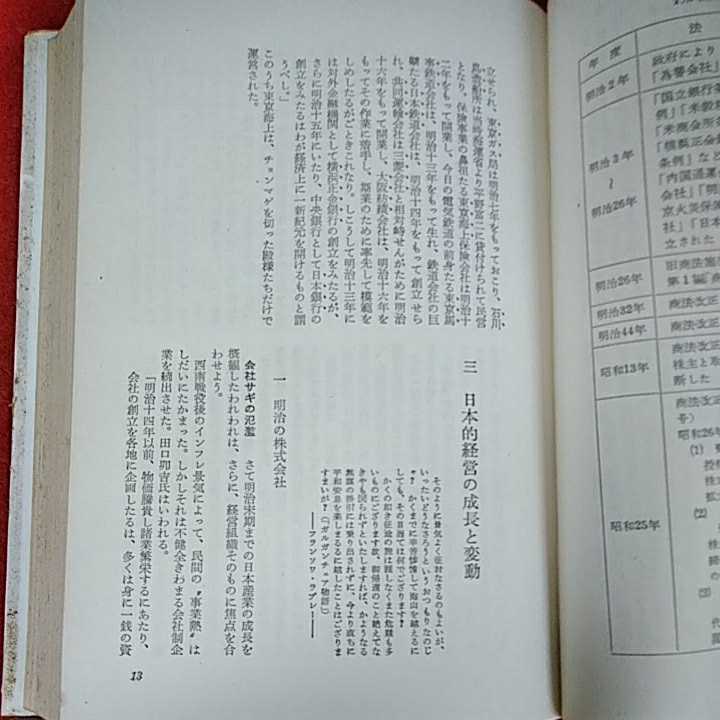 立せられ、東京ガス局は明治七年をもっておこり、石川
島造船所は当時海運省より平野富二に貸付けられて民営
となり、保険事業の鼻祖たる東京海上保険会社は明治十
二年をもって開業し、今日の電気鉄道の前身たる東京馬
車鉄道会社は、明治十三年をもって生れ、鉄道会社の巨
擘たる日本鉄道会社は、明治十四年をもって創立せら
れ、共同運輸会社は三菱会社と相対峙せんがために明治
十六年をもって開業し、大阪紡績会社は、明治十六年を
もってその作業に着手し、斯業のために率先して模範を
しめしたるがごときこれなり。しこうして明治十三年に
は対外金融機関として横浜正金銀行の創立をみたるが、
さらに明治十五年にいたり、中央銀行として日本銀行の
創立をみたるはわが経済上に一新紀元を開けるものと謂
うべし。」
このうち東京海上は、チョンマゲを切った殿様たちだけで
運営された。
三　日本的経営の成長と変動
そのように景気よく征おなさるのもよいが、
いったいどうなさろうというおつもりなのじ
ゃ？かくまでに辛苦惨憺して海山を越えるに
しても、その目当ては何でござります？
かくの如き征途の旅は難しなくまた危険も多
いものにござります故、御帰還のこと絶えてな
きやも図られずといたしますれば、かような
無謀の掛引には乗り出されずに、今より直ちに
平和安息を楽しまるるに越したことはござりま
すまいが？（『ガルガンチュア物語』）
――フランソワ・ラブレー――
一　明治の株式会社
会社サギの氾濫　さて明治末期までの日本産業の成長を
概観したわれわれは、さらに、経営組織そのものに焦点を合
わせよう。
西南戦役後のインフレ景気によって、民間の〝事業熱〟は
しだいにたかまった。しかしそれは不健全きわまる会社制企
業を続出させた。田口卯吉氏はいわれる。
「明治十四年以前、物価騰貴し諸業繁栄するにあたり、
会社の創立を各地に企画したるは、多くは身に一銭の資
13
年度
法
明治2年
政府により
「為替会社」
明治3年
〜
明治26年
「国立銀行
例」「米穀
「米商会所
「横浜正金
条例」など
「内国通運
会社」「明
京火災保険
社」「日本
立された
明治26年
旧商法施
第1編
明治32年
商法改正
明治44年
商法改正
昭和13年
商法改正
株主と取
断した
昭和25年
商法改正
号）
昭和26年
(1)
(2)
(3)